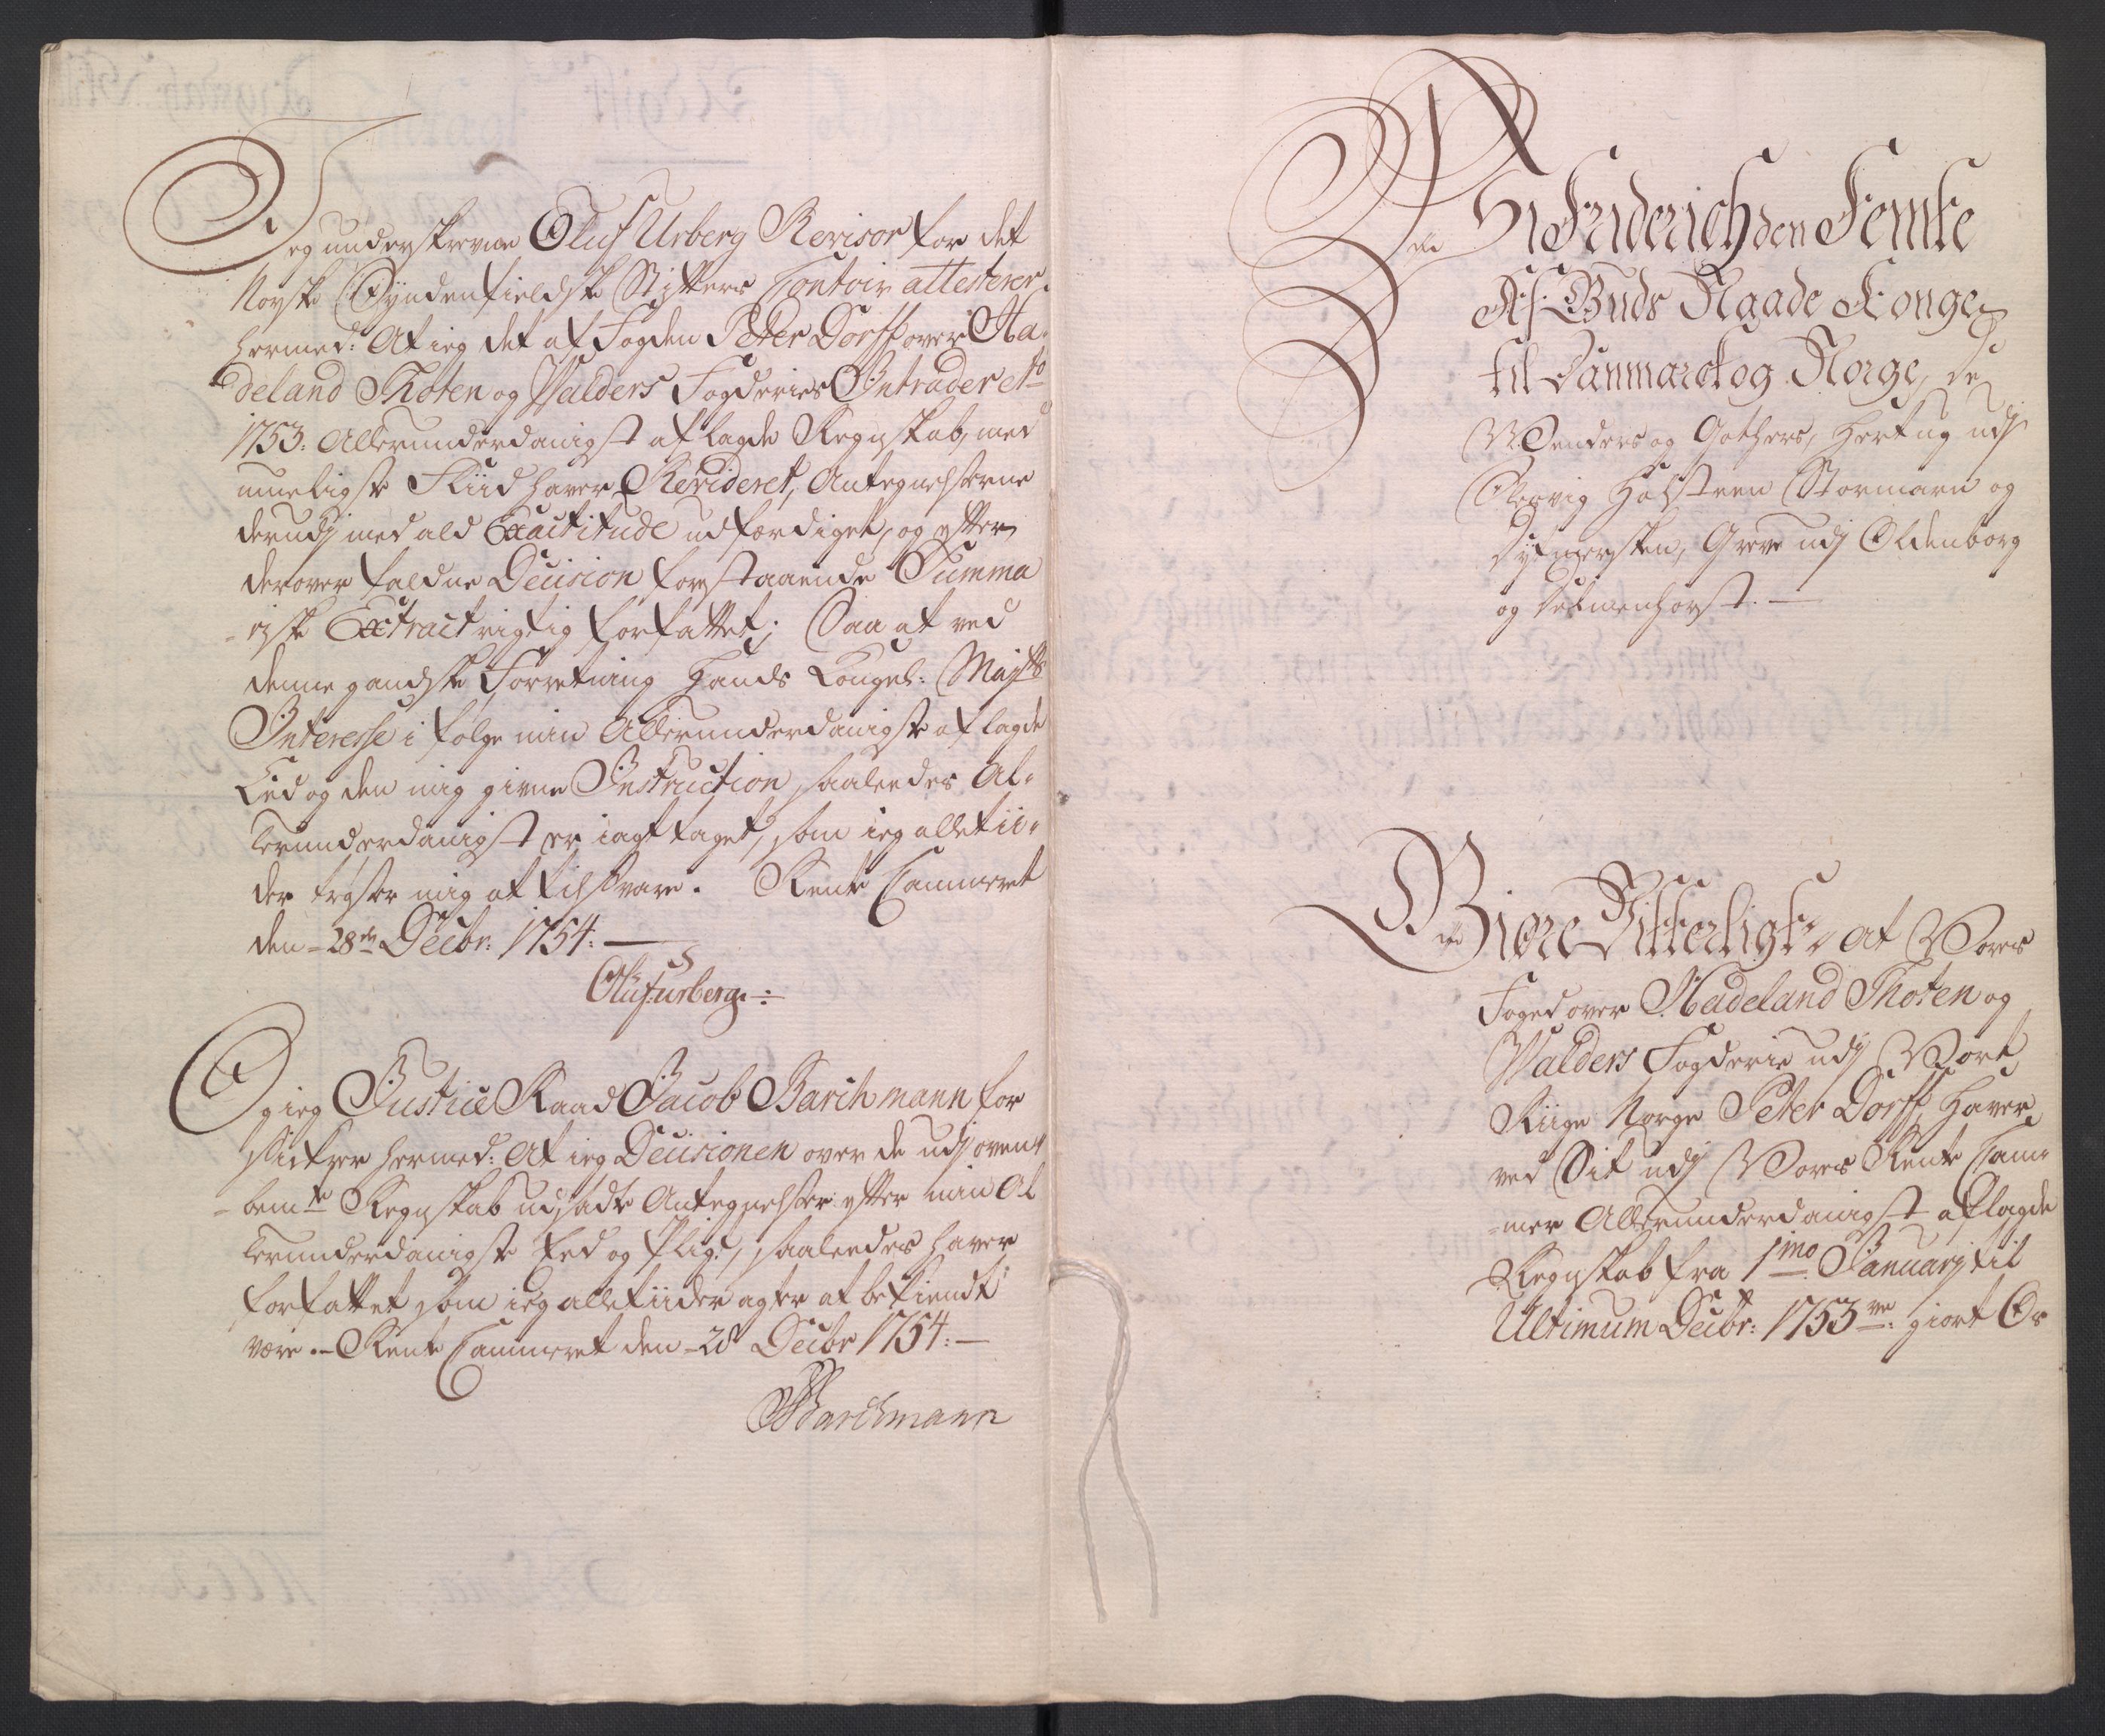 Jeg underskrevne Oluf Urberg Revisor for det
Norske Syndenfieldske Stifters Contoir attesterer
hermed: At ieg det af Fogden Peter Dorff over Ha-
deland Thoten og Walders Fogderies Intrader et to
1753: Allerunderdanigst aflagde Regnskab, med
mueligste Fliid haver Revideret, Antegnelserne
derudj med ald Exactitude udfærdiget, og efter
derover faldne Decision forestaaende Summa
-riske Extract rigtig forfattet; Saa at ved
denne gandske Forretning Hands Kongel: Majts
Interesse i følge min Allerunderdanigste aflagde
Eed og den mig givne Instruction, saaledes Al-
lerunderdanigst er iagttaget, som ieg alletii-
der trøster mig at tilsvare. Rente Cammeret
den 28de Decbr: 1754:
Oluf Urberg:
Og ieg Justice Raad Jacob Barchmann for
sickrer hermed: At ieg Decisionen over de udj oven-
-bemte Regnskab udsadte Antegnelser efter min Al
lerunderdanigste Eed og Pligt, saaledes haver
forfattet som ieg alletiider agter at bekiendt
være. - Rente Cammeret den 28 Decbr 1754: -
JBarchmann
Vi Friderich den Femte
Af Guds Naade Konge
til Danmarck og Norge, de
Wenders og Gothers, Hertug udj
Slesvig Holsteen Stormarn og
Dytmersken, Greve udj Oldenborg
og Delmenhorst. -
Giøre Vitterligt, At Vores
Foged over Hadeland Thoten og
Walders Fogderie udj Vort
Riige Norge Peter Dorff haver
ved Sit udj Vores Rente Cam-
-mer Allerunderdanigst aflagde
Regnskab fra 1mo Januarj til
Ultimum Decbr: 1753ve: giort Os